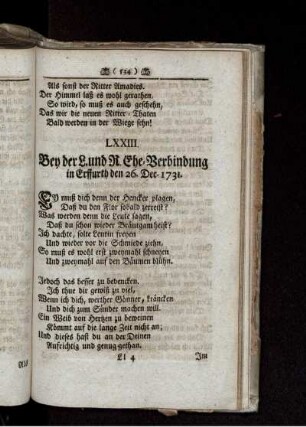 ( 534 )
Als sonst der Ritter Amadies.
Der Himmel laß es wohl gerathen.
So wird, so muß es auch geschehn,
Das wir die neuen Ritter-Thaten
Bald werden in der Wiege sehn!
LXXIII.
Bey der L. und N. Ehe-Verbindung
in Erffurth den 26. Dec. 1731.
EY muß dich denn der Hencker plagen,
Daß du den Flor sobald zerreist?
Was werden denn die Leute sagen,
Daß du schon wieder Bräutgam heist?
Ich dachte, solte Lentin freyen
Und wieder vor die Schmiede ziehn,
So muß es wohl erst zweymahl schneyen
Und zweymahl auf den Bäumen blühn.
Jedoch das besser zu bedencken.
Ich thue dir gewiß zu viel,
Wenn ich dich, werther Gönner, kräncken
Und dich zum Sünder machen will.
Ein Weib von Hertzen zu beweinen
Kömmt auf die lange Zeit nicht an;
Und dieses hast du an der Deinen
Aufrichtig und genug gethan.
Ll 4
Im